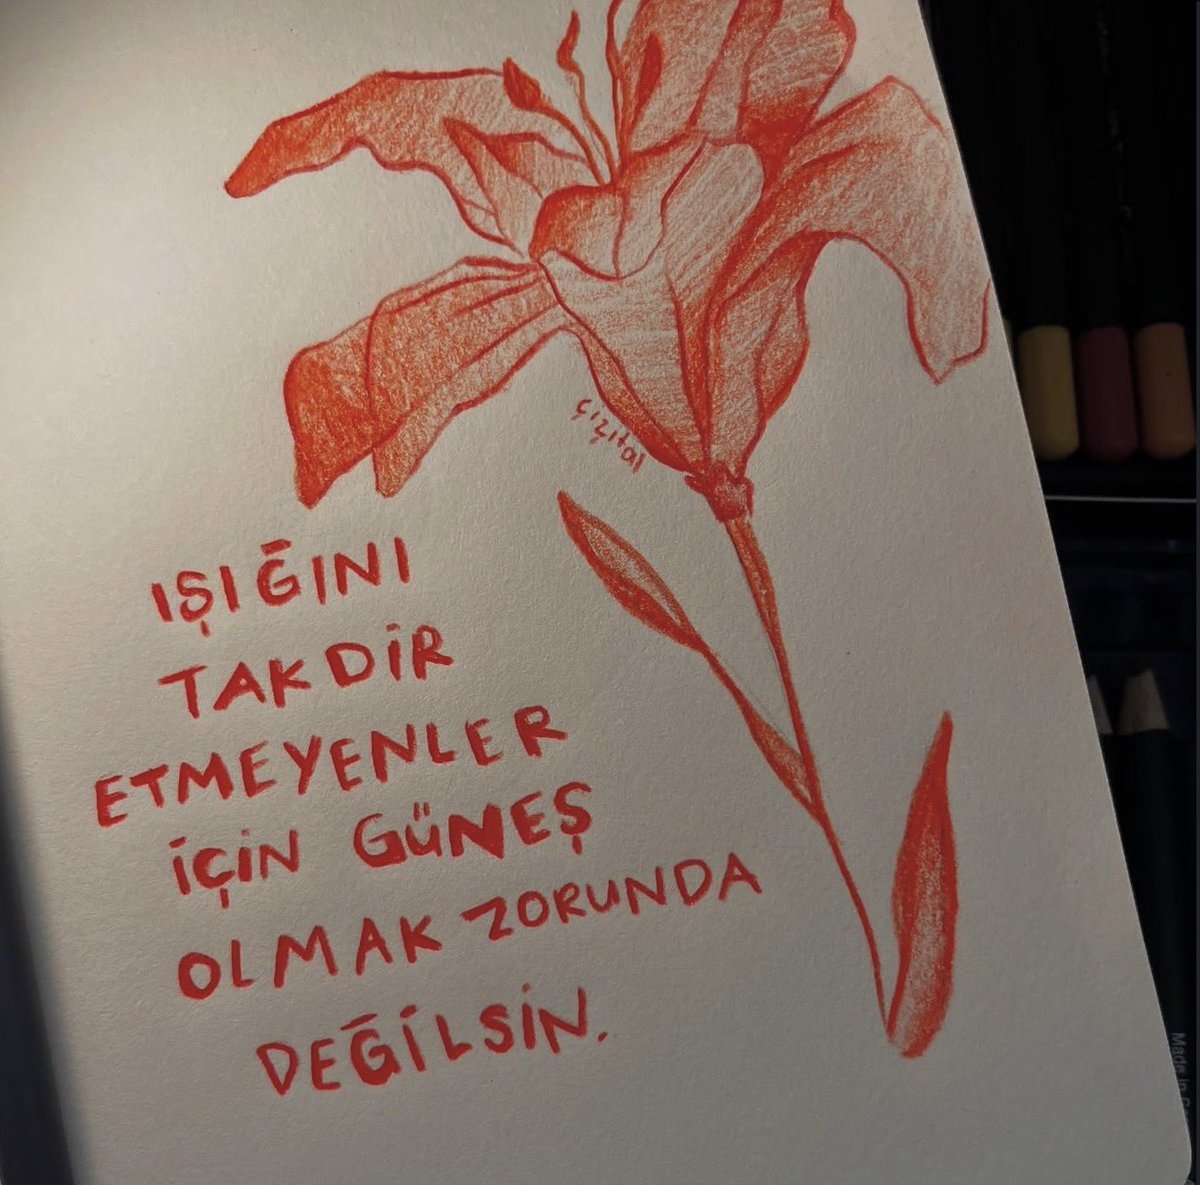 çizital
IŞIĞINI
TAKDİR
ETMEYENLER
İÇİN GÜNEŞ
OLMAK ZORUNDA
DEĞİLSİN.
Made in